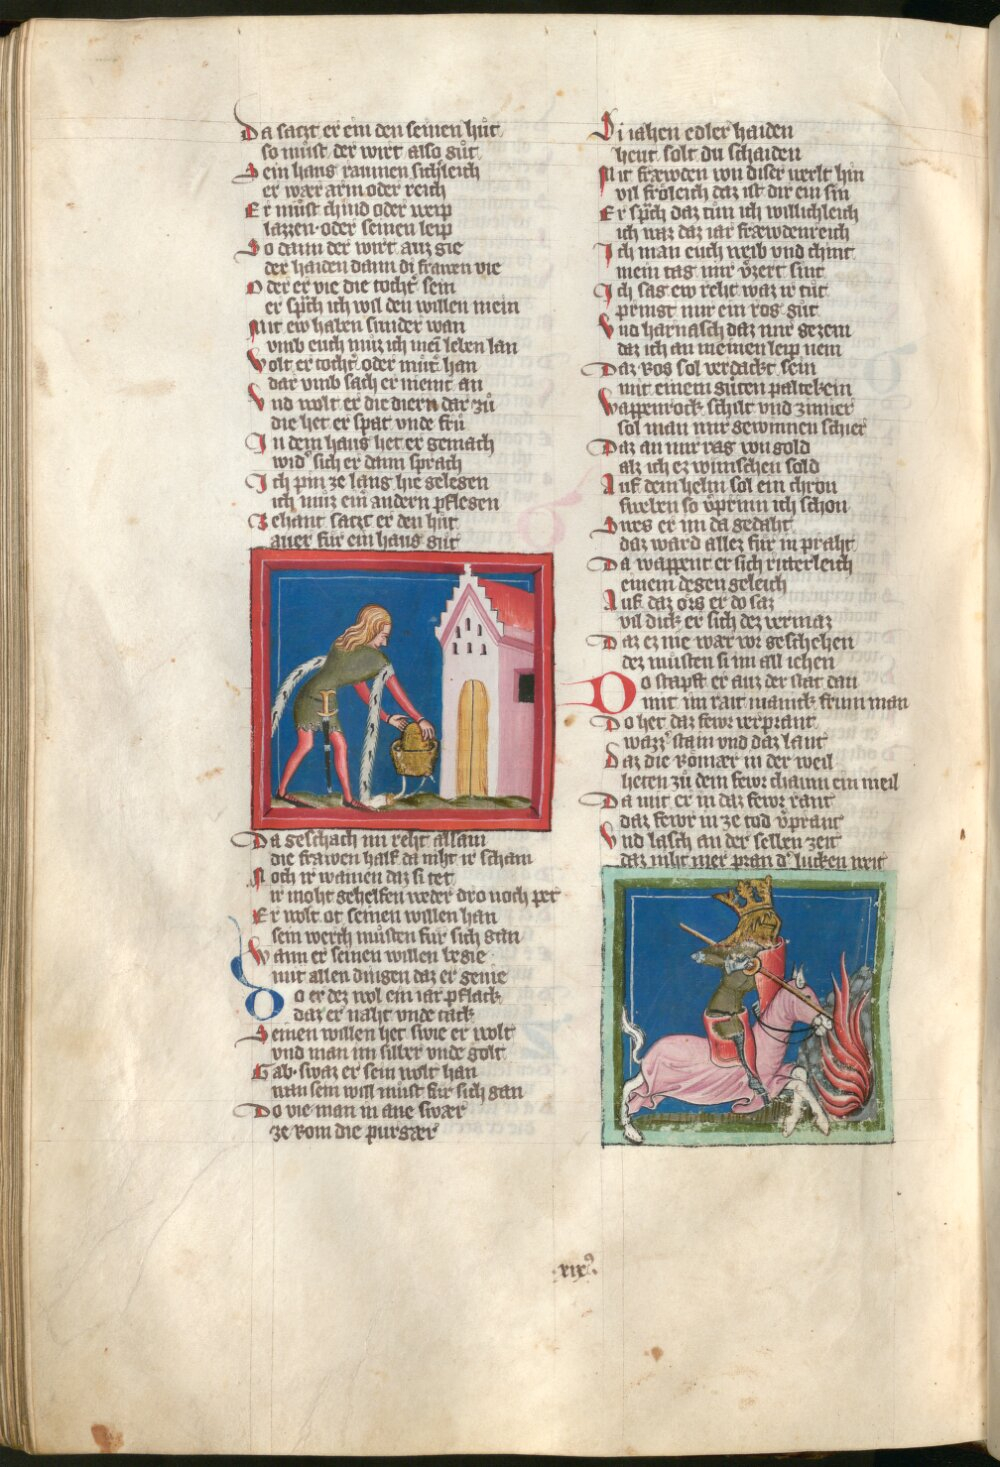 Da satzt er ein den seinen hůt
so můst der wirt also gůt
Sein haus raumen sichleich
er wær arm oder reich
Er můst chind oder weip
lazzen oder seinen leip
So dann der wirt auz gie
der haiden dann di frawen vie
Oder er vie die tocht̓ sein
er sp̄ch ich wil den willen mein
Mit ew haben sunder wan
vmb euch muz ich mein̄ leben lan
Wolt er tocht̓ oder můt̓ han
dar vmb sach er niemt an
Vnd wolt er die diern dar zů
die het er spat vnde frů
In dem haus het er gemach
wid̓ sich er dann sprach
Ich pin ze lang hie gelegen
ich můz ein̄ andern pflegen
Zehant satzt er den hůt
auer fůr ein haus gůt
Da geschach im reht alsam
die frawen half da niht ir scham
Noch ir wainen daz si tet
ir moht gehelfen weder dro noch pet
Er wolt ot seinen willen han
sein werch můsten fůr sich gan
Wann er seinen willen begie
mit allen dingen daz er genie
Do er dez wol ein iar pflack
daz er naht vnde tack
Seinen willen het swie er wolt
vnd man im silber vnde golt
Gab swaz er sein wolt han
wan sein will můst fůr sich gan
Do vie man in ane swær
ze Rom die purgær
Di iahen edler haiden
heut solt du schaiden
Mit fræwden von diser werlt hin
vil frőleich daz ist dir ein sin
Er sp̄ch daz tůn ich willichleich
ich waz daz iar fræwdenreich
Ich man euch weib vnd chint
mein tag mir v̓zert sint
Ich sag ew reht waz ir tůt
pringt mir ein ros gůt
Vnd harnasch daz mir gezem
daz ich an meinen leip nem
Daz Ros sol verdackt sein
mit einem gůten paltekein
Wappenrock schilt vnd zimier
sol man mir gewinnen schier
Daz an mir rag von gold
alz ich ez wünschen sold
Auf dem helm sol ein chron
sweben so v̓prinn ich schon
Swes er im da gedaht
daz ward allez für in praht
Da wappent er sich ritterleich
einem degen geleich
Auf daz ors er do saz
vil dick er sich dez vermaz
Daz ez nie wær vor geschehen
dez můsten si im all iehen
Do stapft er auz der stat dan
mit im rait manick frum man
Do het daz fewr verprant
wazz̓ stain vnd daz lant
Daz die Römær in der weil
heten zů dem fewr chaum ein meil
Da mit er in daz fewr rant
daz fewr in ze tod v̓prant
Vnd lasch an der selben zeit
daz niht mer pran d̓ lucken weit
·xix⁹·